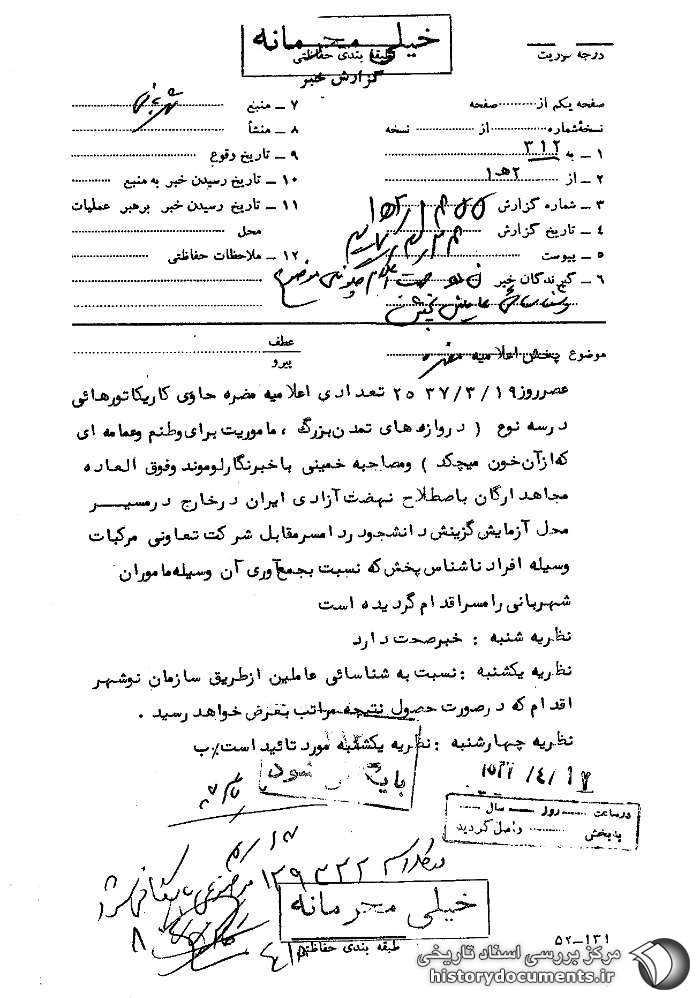 خیلی محرمانه
طبقه بندی حفاظتی
گزارش خبر
درجه فوریت
صفحه یکم از صفحه
نسخهٔشماره از نسخه
۱ ـ به ۳۱۲
۲ ـ از ۲هـ۱
۳ ـ شماره گزارش
۴ ـ تاریخ گزارش
۵ ـ پیوست
۶ ـ گیرندگان خبر
۷ ـ منبع
۸ ـ منشأ
۹ ـ تاریخ وقوع
۱۰ ـ تاریخ رسیدن خبر به منبع
۱۱ ـ تاریخ رسیدن خبر برهبر عملیات
محل
۱۲ ـ ملاحظات حفاظتی
موضوع پخش اعلامیه مضره
عطف
پیرو
عصرروز ۲۵۳۷/۳/۱۹ تعدادی اعلامیه مضره حاوی کاریکاتورهائی
درسه نوع ( دروازه های تمدن بزرگ ، ماموریت برای وطنم وعمامه ای
که ازآن خون میچکد ) ومصاحبه خمینی باخبرنگارلوموند وفوق العاده
مجاهد ارگان باصطلاح نهضت آزادی ایران درخارج درمسیر
محل آزمایش گزینش دانشجود ررامسرمقابل شرکت تعاونی مرکبات
وسیله افراد ناشناس پخش که نسبت بجمع آوری آن وسیله ماموران
شهربانی رامسراقدام گردیده است
نظریه شنبه : خبرصحت دارد
نظریه یکشنبه : نسبت به شناسائی عاملین ازطریق سازمان نوشهر
اقدام که درصورت حصول نتیجه مراتب بعرض خواهد رسید .
نظریه چهارشنبه : نظریه یکشنبه مورد تائید است/ ب
بایگانی شود
درساعت روز سال
بدبخش واصل گردید
۱۲۹۳۲۲
خیلی محرمانه
طبقه بندی حفاظتی
۵۲ـ۱۳۱
مرکز بررسی اسناد تاریخی
historydocuments.ir